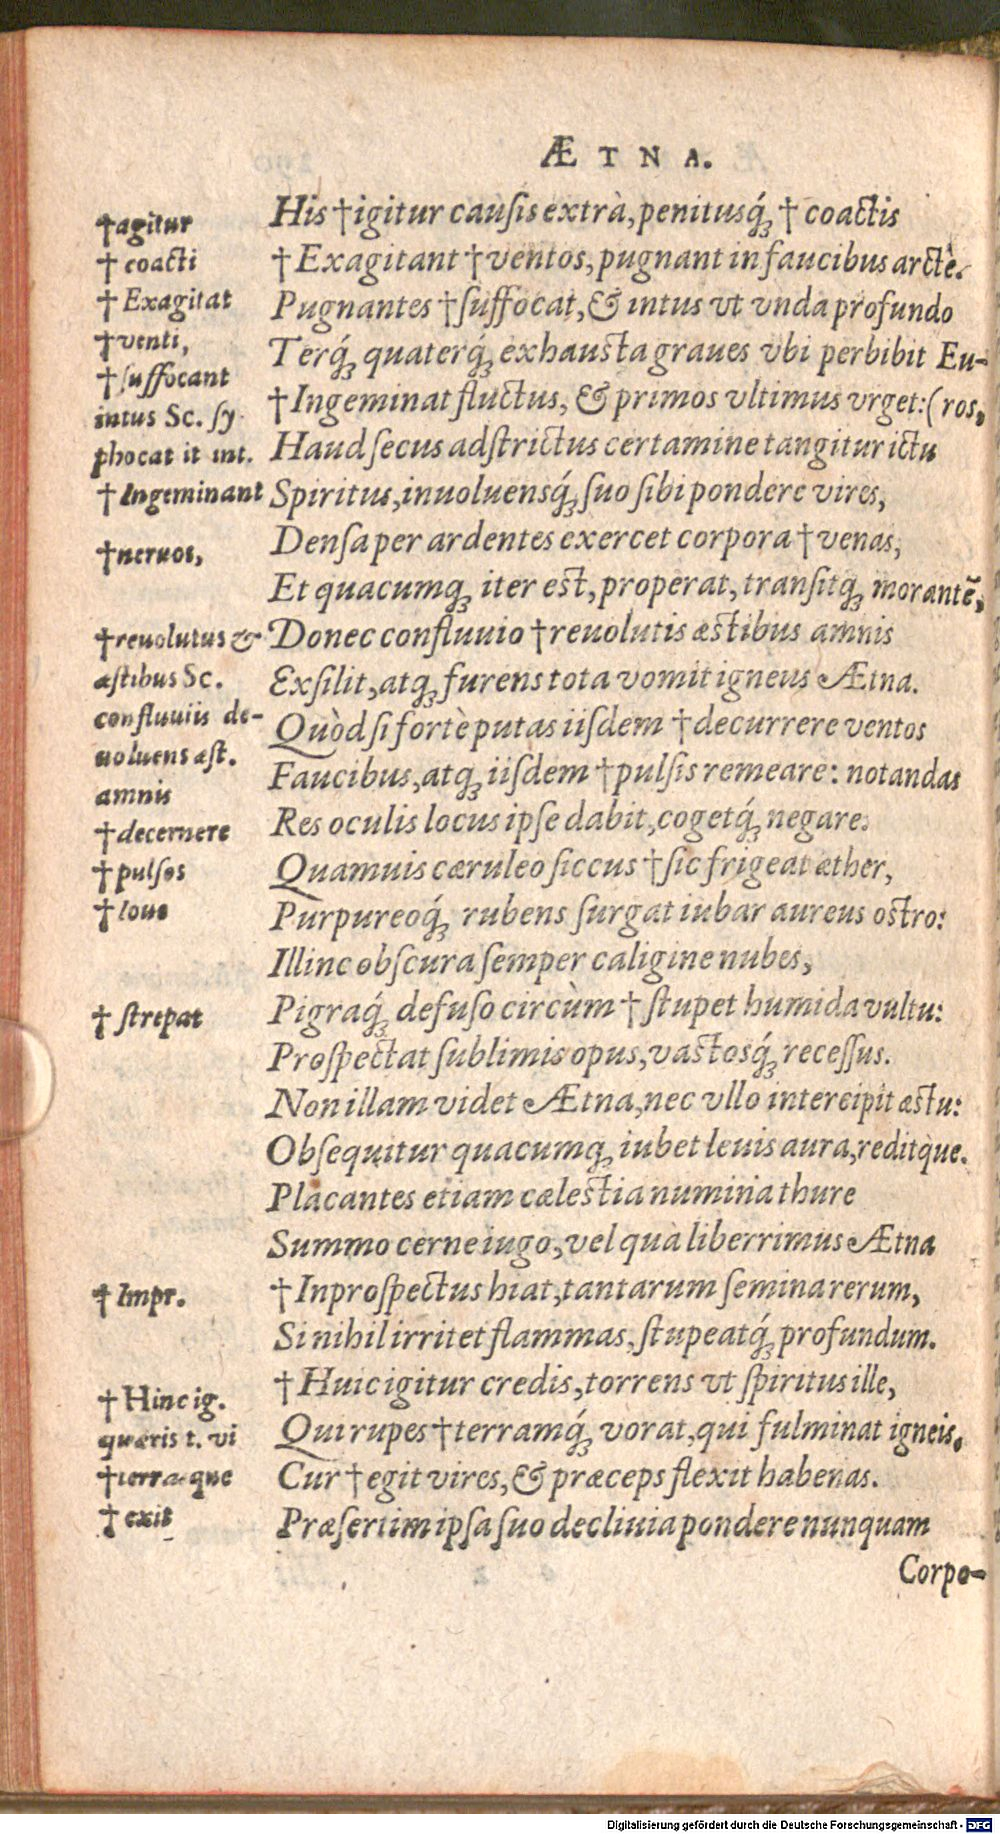 ÆTNA.
His †igitur causis extrà, penitusq́; † coactis
† Exagitant †ventos, pugnant in faucibus arctè.
Pugnantes †suffocat, & intus vt vnda profundo
Terq́; quaterq́; exhausta graues vbi perbibit Eu-
†Ingeminat fluctus, & primos vltimus vrget: (ros,
Haud secus adstrictus certamine tangitur ictu
Spiritus, inuoluensq́; suo sibi pondere vires,
Densa per ardentes exercet corpora † venas,
Et quacumq; iter est, properat, transitq; morantẽ,
Donec confluuio †reuolutis æstibus amnis
Exsilit, atq; furens tota vomit igneus Ætna.
Quòd si fortè putas iisdem †decurrere ventos
Faucibus, atq; iisdem †pulsis remeare: notandas
Res oculis locus ipse dabit, cogetq́; negare.
Quamuis cæruleo siccus †sic frigeat æther,
Purpureoq́; rubens surgat iubar aureus ostro:
Illinc obscura semper caligine nubes,
Pigraq́; defuso circùm † stupet humida vultu:
Prospectat sublimis opus, vastosq́; recessus.
Non illam videt Ætna, nec vllo intercipit æstu:
Obsequitur quacumq; iubet leuis aura, reditque.
Placantes etiam cælestia numina thure
Summo cerne iugo, vel quà liberrimus Ætna
†Inprospectus hiat, tantarum semina rerum,
Si nihil irritet flammas, stupeatq́; profundum.
†Huic igitur credis, torrens vt spiritus ille,
Qui rupes †terramq́; vorat, qui fulminat igneis,
Cur †egit vires, & præceps flexit habenas.
Præsertim ipsa suo decliuia pondere nunquam
Corpo-
†agitur
† coacti
† Exagitat
†venti,
†suffocant
intus Sc. sy
phocat it int.
†Ingeminant
†neruos,
†reuolutus &
æstibus Sc.
confluuiis de-
uoluens æst.
amnis
†decernere
†pulsos
†Ioue
† strepat
† Impr.
†Hinc ig.
quæris t. vi
†terra que
†exit
Digitalisierung gefördert durch die Deutsche Forschungsgemeinschaft - DFG